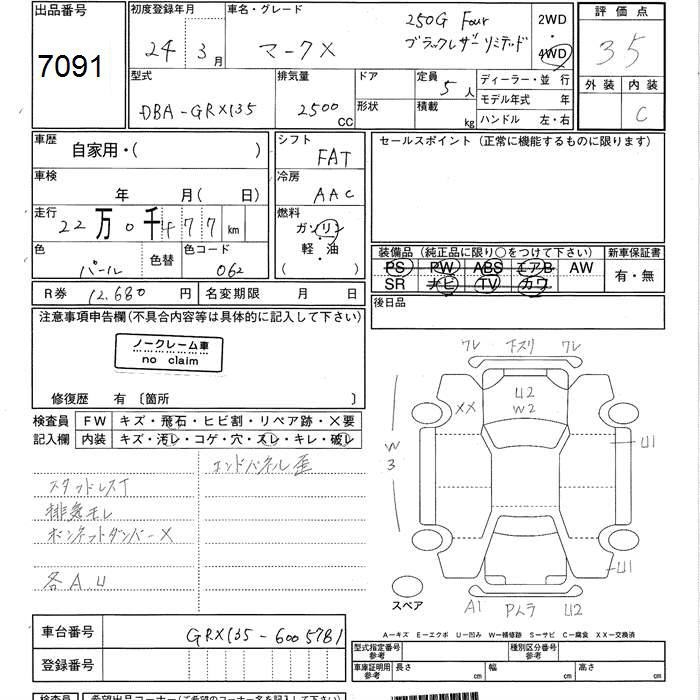 出品番号 7091
初度登録年月日 24年 3月
車名・グレード マークX 250G Four ブラックレザーリミテッド
2WD ・ 4WD
評価点 35
外装 内装 C
型式 DBA-GRX135
排気量 2500 CC
ドア 形状
定員 5人 積載 kg
ディーラー・並行
モデル年式 年
ハンドル 左・右
車歴 自家用・( )
シフト FAT
セールスポイント (正常に機能するものに限ります)
車検 年 月( 日)
冷房 AAC
走行 22万0千477 km
燃料 ガソリン ・ 軽・油 ( )
色 パール 色替 色コード 062
装備品 (純正品に限り○をつけて下さい)
PS PW ABS エアB AW
SR ナビ TV カワ
新車保証書 有・無
R券 12,680円 名変期限 月 日
後日品
注意事項申告欄(不具合内容等は具体的に記入して下さい)
ノークレーム車
no claim
修復歴 有 〔箇所 〕
検査員記入欄
FW キズ・飛石・ヒビ割・リペア跡・X要
内装 キズ・汚レ・コゲ・穴・スレ・キレ・破レ
エンドパネル歪
スタッドレスT
排気モレ
ボンネットダンパーX
各A.U
ワレ 下スリ ワレ
XX U2 W2
W3 U1
U1
スペア A1 Pムラ U2
A-キズ E-エクボ U-凹み W-補修跡 S-サビ C-腐食 XX-交換済
車台番号 GRX135-6005781
登録番号
型式指定番号 参考 種別区分番号 参考
車庫証明用 参考 長さ cm 幅 cm 高さ cm
検査員 希望出品コーナー(ご希望のコーナー名を記入下さい)